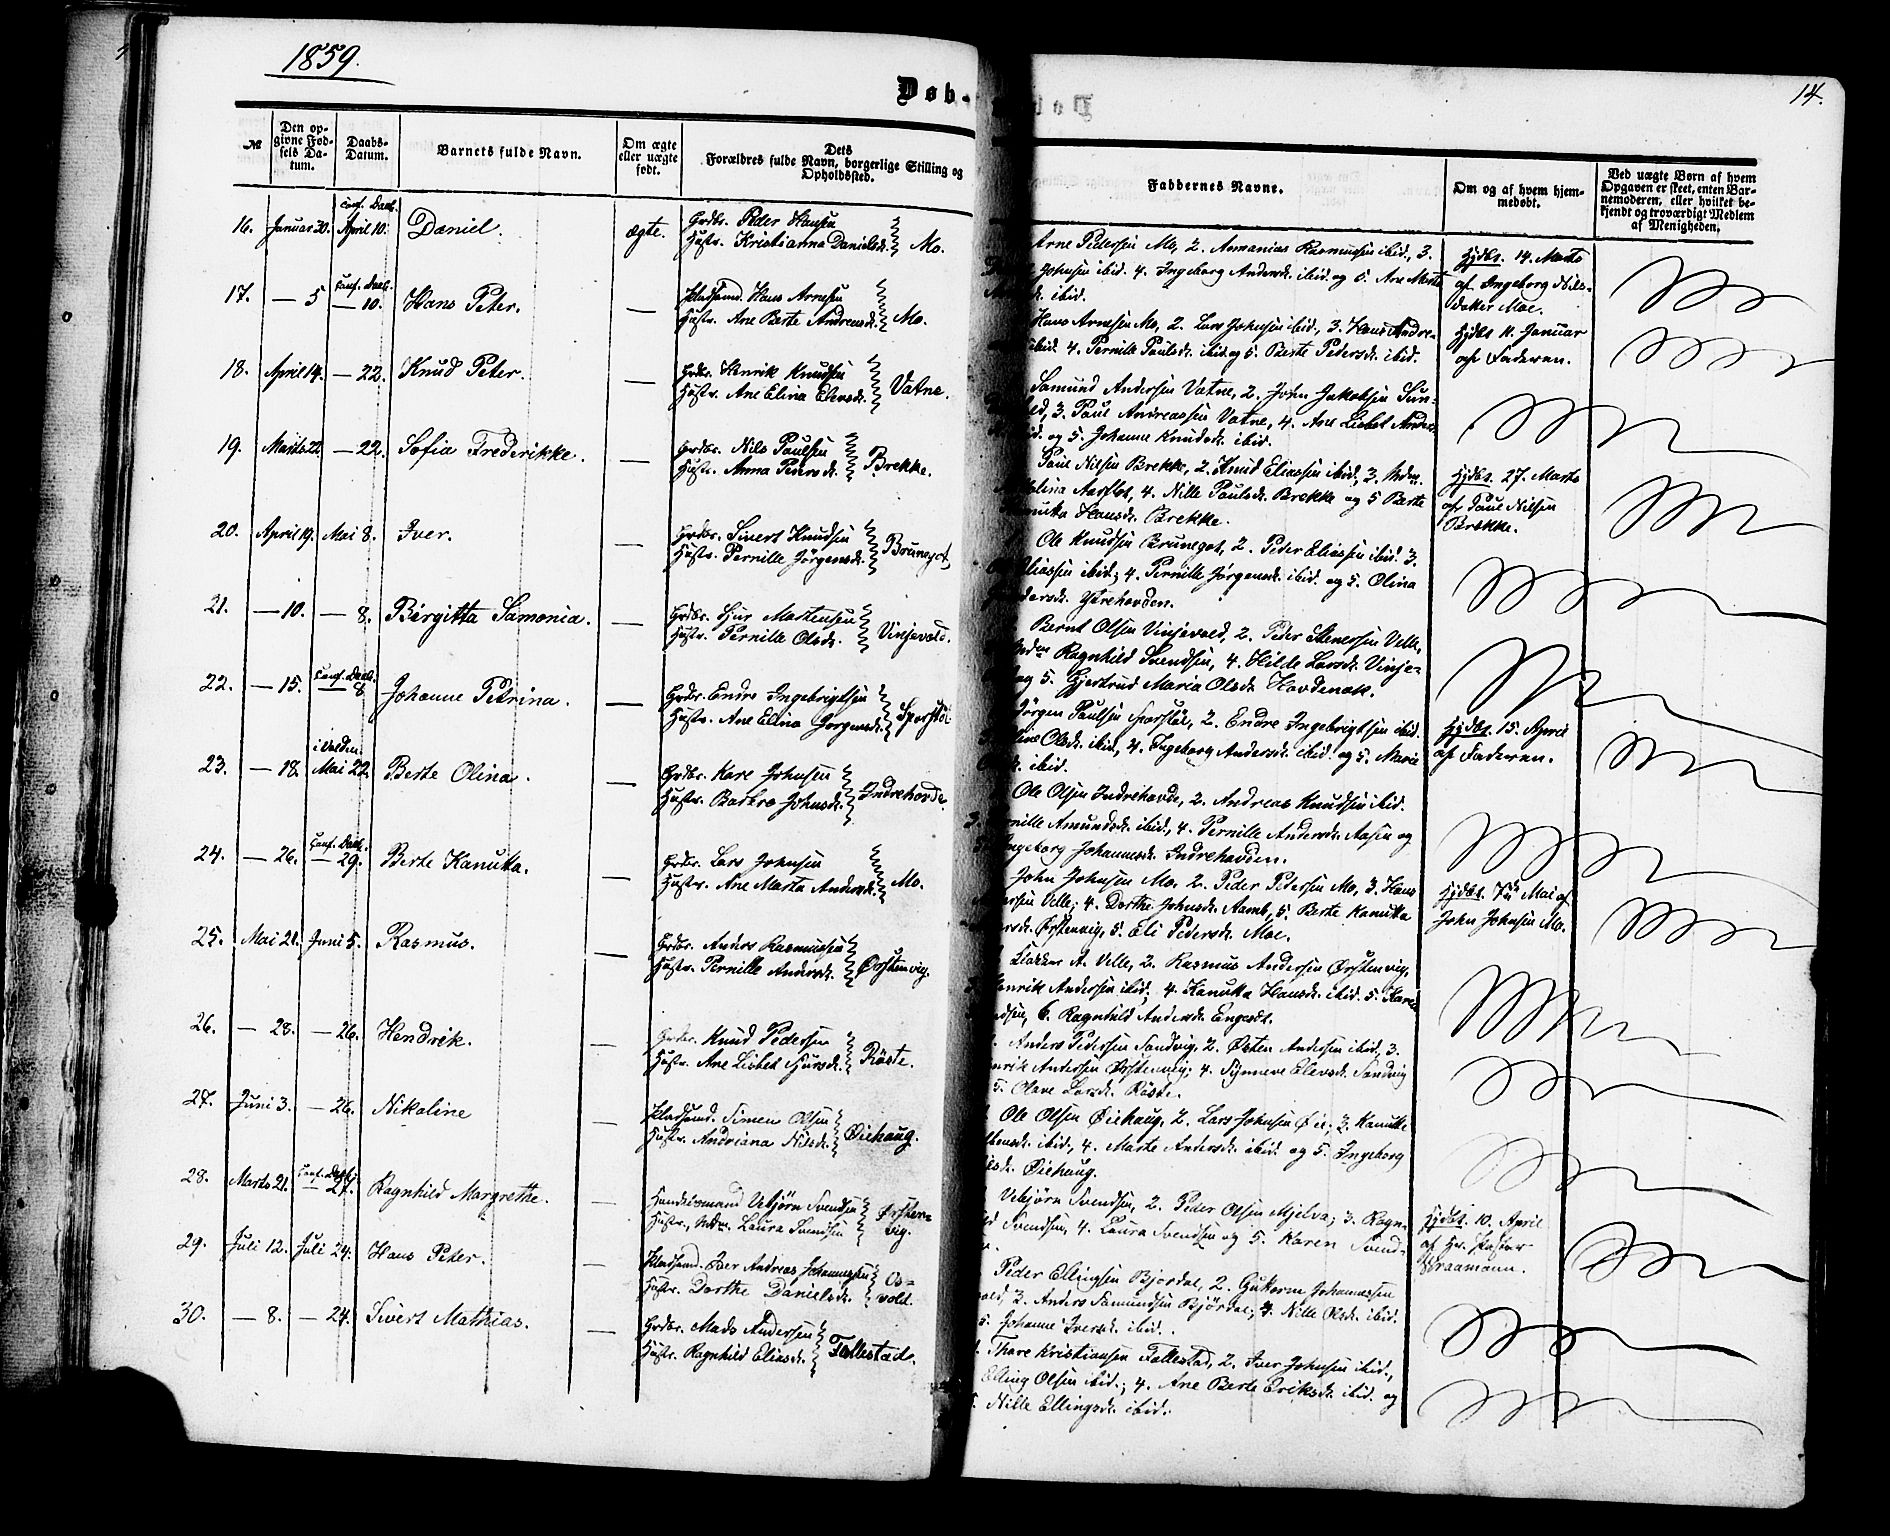 1859.
Døb-
14.
№
Den op-
givne Fød-
sels Da-
tum.
Daabs-
Datum.
Barnets fulde Navn.
Om ægte
eller uægte
født.
Dets
Forældres fulde Navn, borgerlige Stilling og
Opholdssted.
Faddernes Navne.
Om og af hvem hjem-
medøbt.
Ved uægte Børn af hvem
Opgaven er skeet, enten Bar-
nemoderen, eller hvilket be-
kjendt og troværdigt Medlem
af Menigheden.
16. Januar 20. Conf. Daab. April 10. Daniel. ægte.
Grdbr. Peder Hansen
Hustr. Kristianna Danielsdr. Mo.
Arne Pedersen Mo, 2. Annanias Rasmussen ibid., 3.
Johnsen ibid. 4. Ingeborg Andersdr. ibid. og 5. Ane Marte
ibid.
Hjdbt. 14. Marts
af Ingeborg Nils-
datter Moe.
17. — 5 Conf. Daab. — 10. Hans Peter. —
Hans Arnesen
Hustr. Ane Berte Andreasdr. Mo.
Hans Arnesen Mo, 2. Lars Johnsen ibid., 3. Hans Andre-
ibid. 4. Pernille Paulsdr. ibid. og 5. Berte Pedersdr. ibid.
Hjdbt. 11. Januar
af Faderen.
18. April 14. — 22. Knud Peter. —
Grdbr. Henrik Knudsen
Hustr. Ane Elina Elevsdr. Vatne.
Samund Andersen Vatne, 2. John Jakobsen
3. Paul Andreassen Vatne, 4. Ane Lisbet Andr-
og 5. Johanne Knudsdr. ibid.
19. Marts 22 — 22. Sofia Frederikke. —
Grdbr. Nils Paulsen
Hustr. Anna Petersdr. Brekke.
Paul Nilsen Brekke, 2. Knud Eliassen ibid., 3. Mdm.
Aarflot, 4. Nille Paulsdr. Brekke og 5 Berte
Hansdr. Brekke.
Hjdbt. 27. Marts
af Paul Nilsen
Brekke.
20. April 19. Mai 8. Iver. —
Grdbr. Sivert Knudsen
Hustr. Pernille Jørgensdr. Brunegot.
Ole Knudsen Brunegot, 2. Peder Eliassen ibid. 3.
Eliassen ibid; 4. Pernille Jørgensdr. ibid. og 5. Olina
Ytrehovden.
21. — 10. — 8. Birgitta Samonia. —
Grdbr. Sjur Mortensen
Hustr. Pernille Olsdr. Vinjevold.
Bernt Olsen Vinjevold, 2. Peder Stenersen Velle,
Ragnhild Svendsen, 4. Hilde Larsdr. Vinje-
og 5. Gjertrud Maria Olsdr. Hovdenak.
22. — 15. Conf. Daab. — 8. Johanne Petrina. —
Grdbr. Endre Ingebrigtsen
Hustr. Ane Elina Jørgensdr. Sporstøl
Jørgen Paulsen Sporstøl, 2. Endre Ingebrigtsen ibid.
Olsdr. ibid, 4. Ingeborg Andersdr. ibid. og 5. Marie
ibid.
Hjdbt. 15. April
af Faderen.
23. — 18. i Volden Mai 22. Berte Olina. —
Grdbr. Kare Johnsen
Hustr. Barbro Johnsdr. Indrehovde.
Ole Olsen Indrehovde, 2. Andreas Knudsen ibid.
Amundsdr. ibid., 4. Pernille Andersdr. Aasen og
Ingeborg Johannesdr. Indrehovden.
24. — 26. Conf. Daab. — 29. Berte Kanutta. —
Grdbr. Lars Johnsen
Hustr. Ane Marta Andersdr. Mo.
John Johnsen Mo. 2. Peder Pedersen Mo, 3. Hans
Velle; 4. Dorthe Johnsdr. Aamb, 5. Berte Kanutta
Ørstenvig, 5. Eli Pedersdr. Moe.
Hjdbt. 7de Mai af
John Johnsen Mo.
25. Mai 21. Juni 5. Rasmus. —
Grdbr. Anders Rasmussen
Hustr. Pernille Andersdr. Ørstenvig.
A. Velle, 2. Rasmus Andersen Ørstenvig,
Henrik Andersen ibid; 4. Kanutta Hansdr. ibid. 5. Karen
6. Ragnhild Andersdr. Engeset.
26. — 28. — 26. Hendrik. —
Grdbr. Knud Pedersen
Hustr. Ane Lisbet Sjursdr. Röste.
Anders Pedersen Sandvig, 2. Østen Andersen ibid., 3.
Andersen Ørstenvig; 4. Synneve Elevsdr. Sandvig
5. Olave Larsdr. Röste.
27. Juni 3. — 26. Nikoline —
Simen Olsen
Hustr. Andriana Nilsdr. Øiehaug.
Ole Olsen Øiehaug, 2. Lars Johnsen Øie; 3. Kanutte
ibid, 4. Marte Andersdr. ibid. og 5. Ingeborg
Øiehaug.
28. Marts 21. Conf. Daab. — 27. Ragnhild Margrethe. —
Handelsmand Vebjørn Svendsen
Hustr., Mdm. Laura Svendsen Ørsten-
vig.
Vebjørn Svendsen, 2. Peder Olsen Mjelva; 3. Ragn-
Svendsen, 4. Laura Svendsen og 5. Karen Svend-
Hjdbt. 10. April
af Hr. Pastor
Vraamann.
29. Juli 12. Juli 24. Hans Peter. —
Iver Andreas Johannessen
Hustr. Dorthe Danielsdr. Os-
vold.
Peder Ellingsen Bjørdal, 2. Guttorm Johannessen
3. Anders Samundsen Bjørdal; 4. Nille Olsdr. ibid.
5. Johanne Iversdr. ibid.
30. — 8. — 24. Sivert Mathias. —
Grdbr. Mads Andersen
Hustr. Ragnhild Eliasdr. Follestad.
Thore Kristiansen Follestad, 2. Iver Johnsen ibid.,
Elling Olsen ibid.; 4. Ane Berte Eriksdr. ibid. og
5. Nille Ellingsdr. ibid.